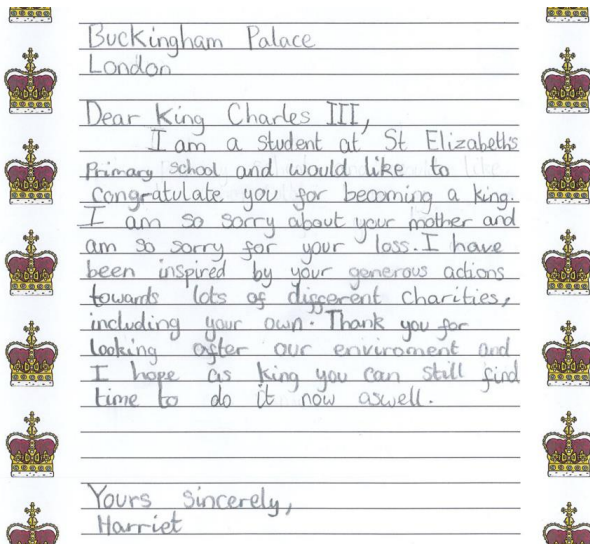 Buckingham Palace
London
Dear King Charles III,
I am a student at St Elizabeth's
Primary school and would like to
congratulate you for becoming a king.
I am so sorry about your mother and
am so sorry for your loss. I have
been inspired by your generous actions
towards lots of different charities,
including your own. Thank you for
looking after our enviroment and
I hope as king you can still find
time to do it now aswell.
Yours sincerely,
Harriet